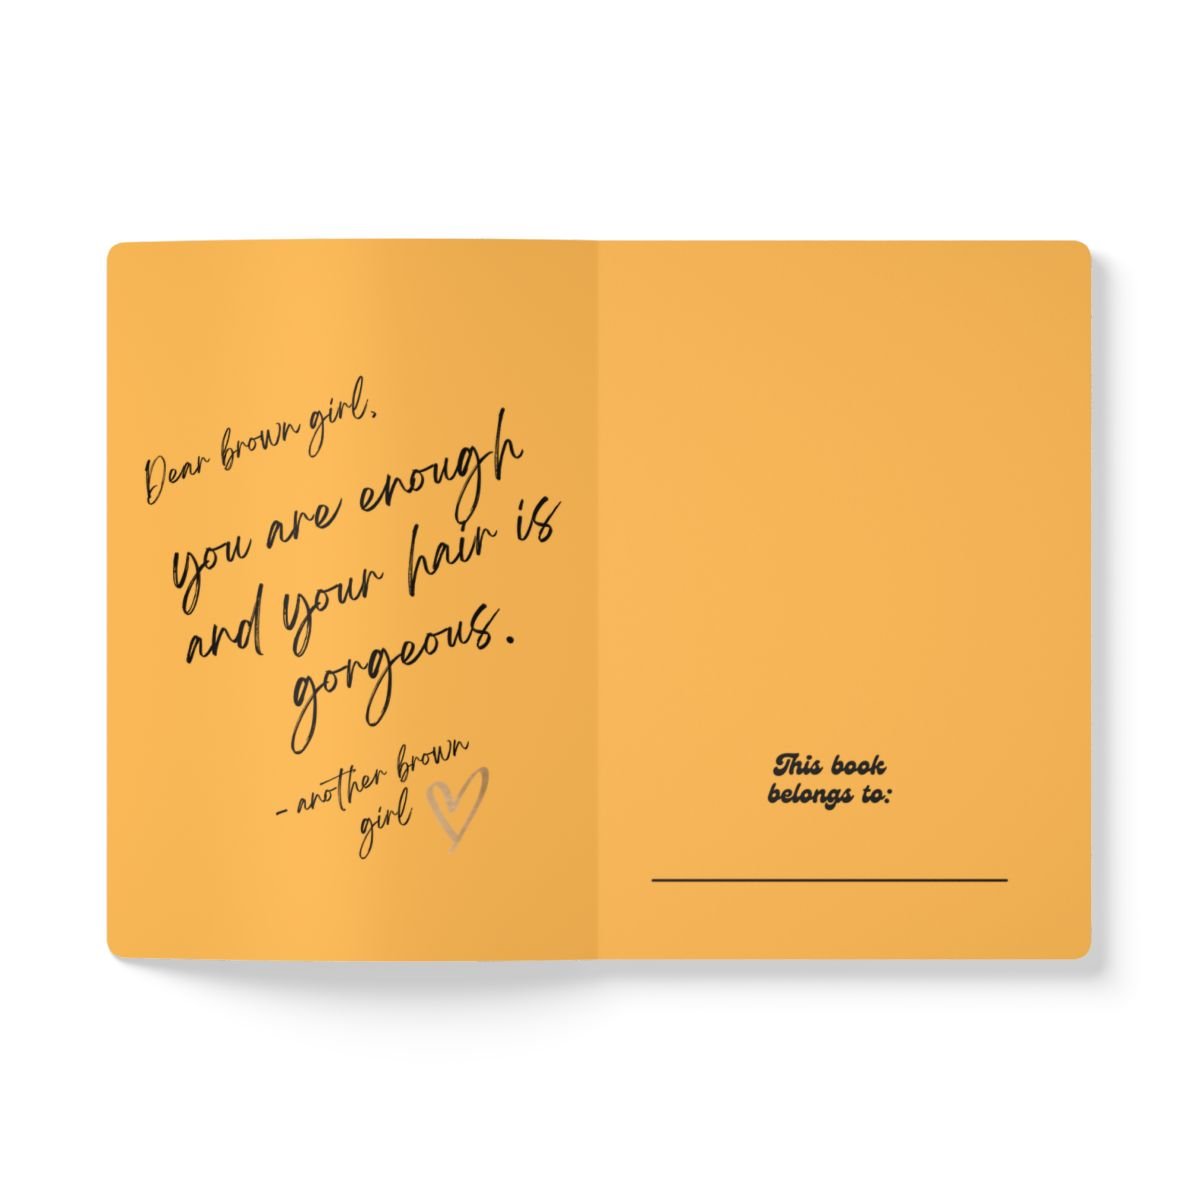 Dear brown girl,
you are enough
and your hair is
gorgeous.
- another brown
girl
This book
belongs to: